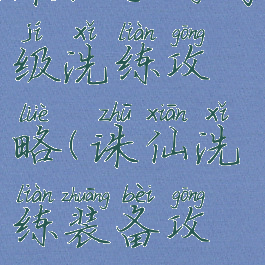 jí xǐ liàn gōng
级洗练攻
lüè zhū xiān xǐ
略(诛仙洗
liàn zhuāng bèi gōng
练装备攻